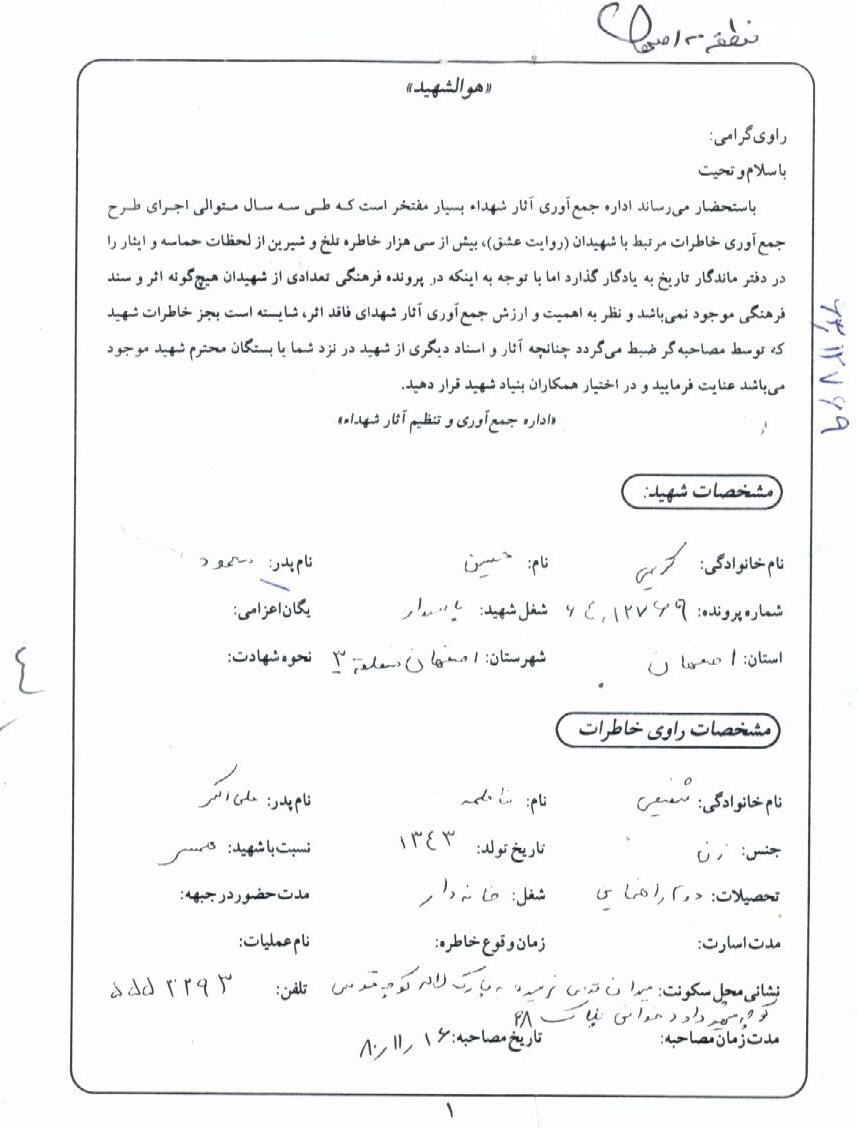 منطقه ۳ اصفهان
«هوالشهید»
راوی گرامی:
باسلام و تحیت
باستحضار می‌رساند اداره جمع‌آوری آثار شهداء بسیار مفتخر است که طی سه سال متوالی اجرای طرح
جمع‌آوری خاطرات مرتبط با شهیدان (روایت عشق)، بیش از سی هزار خاطره تلخ و شیرین از لحظات حماسه و ایثار را
در دفتر ماندگار تاریخ به یادگار گذارد اما با توجه به اینکه در پرونده فرهنگی تعدادی از شهیدان هیچ‌گونه اثر و سند
فرهنگی موجود نمی‌باشد و نظر به اهمیت و ارزش جمع‌آوری آثار شهدای فاقد اثر، شایسته است بجز خاطرات شهید
که توسط مصاحبه‌گر ضبط می‌گردد چنانچه آثار و اسناد دیگری از شهید در نزد شما یا بستگان محترم شهید موجود
می‌باشد عنایت فرمایید و در اختیار همکاران بنیاد شهید قرار دهید.
«اداره جمع‌آوری و تنظیم آثار شهداء»
مشخصات شهید:
نام خانوادگی: کریمی نام: حسین نام پدر: محمود
شماره پرونده: ۶۴,۱۲۷۶۹ شغل شهید: پاسدار یگان اعزامی:
استان: اصفهان شهرستان: اصفهان منطقه ۳ نحوه شهادت:
مشخصات راوی خاطرات
نام خانوادگی: شفیعی نام: فاطمه نام پدر: علی اکبر
جنس: زن تاریخ تولد: ۱۳۴۳ نسبت با شهید: همسر
تحصیلات: دوم راهنمایی شغل: خانه دار مدت حضور در جبهه:
مدت اسارت: زمان و قوع خاطره: نام عملیات:
نشانی محل سکونت: میدان قدس نرسیده به پارک لاله کوچه قدوسی تلفن: ۵۵۵۲۲۹۳
کوچه شهید داود پلاک ۴۸
مدت زمان مصاحبه: تاریخ مصاحبه: ۸۰/۱۱/۱۶
۱
۶۴,۱۲۷۶۹
۴